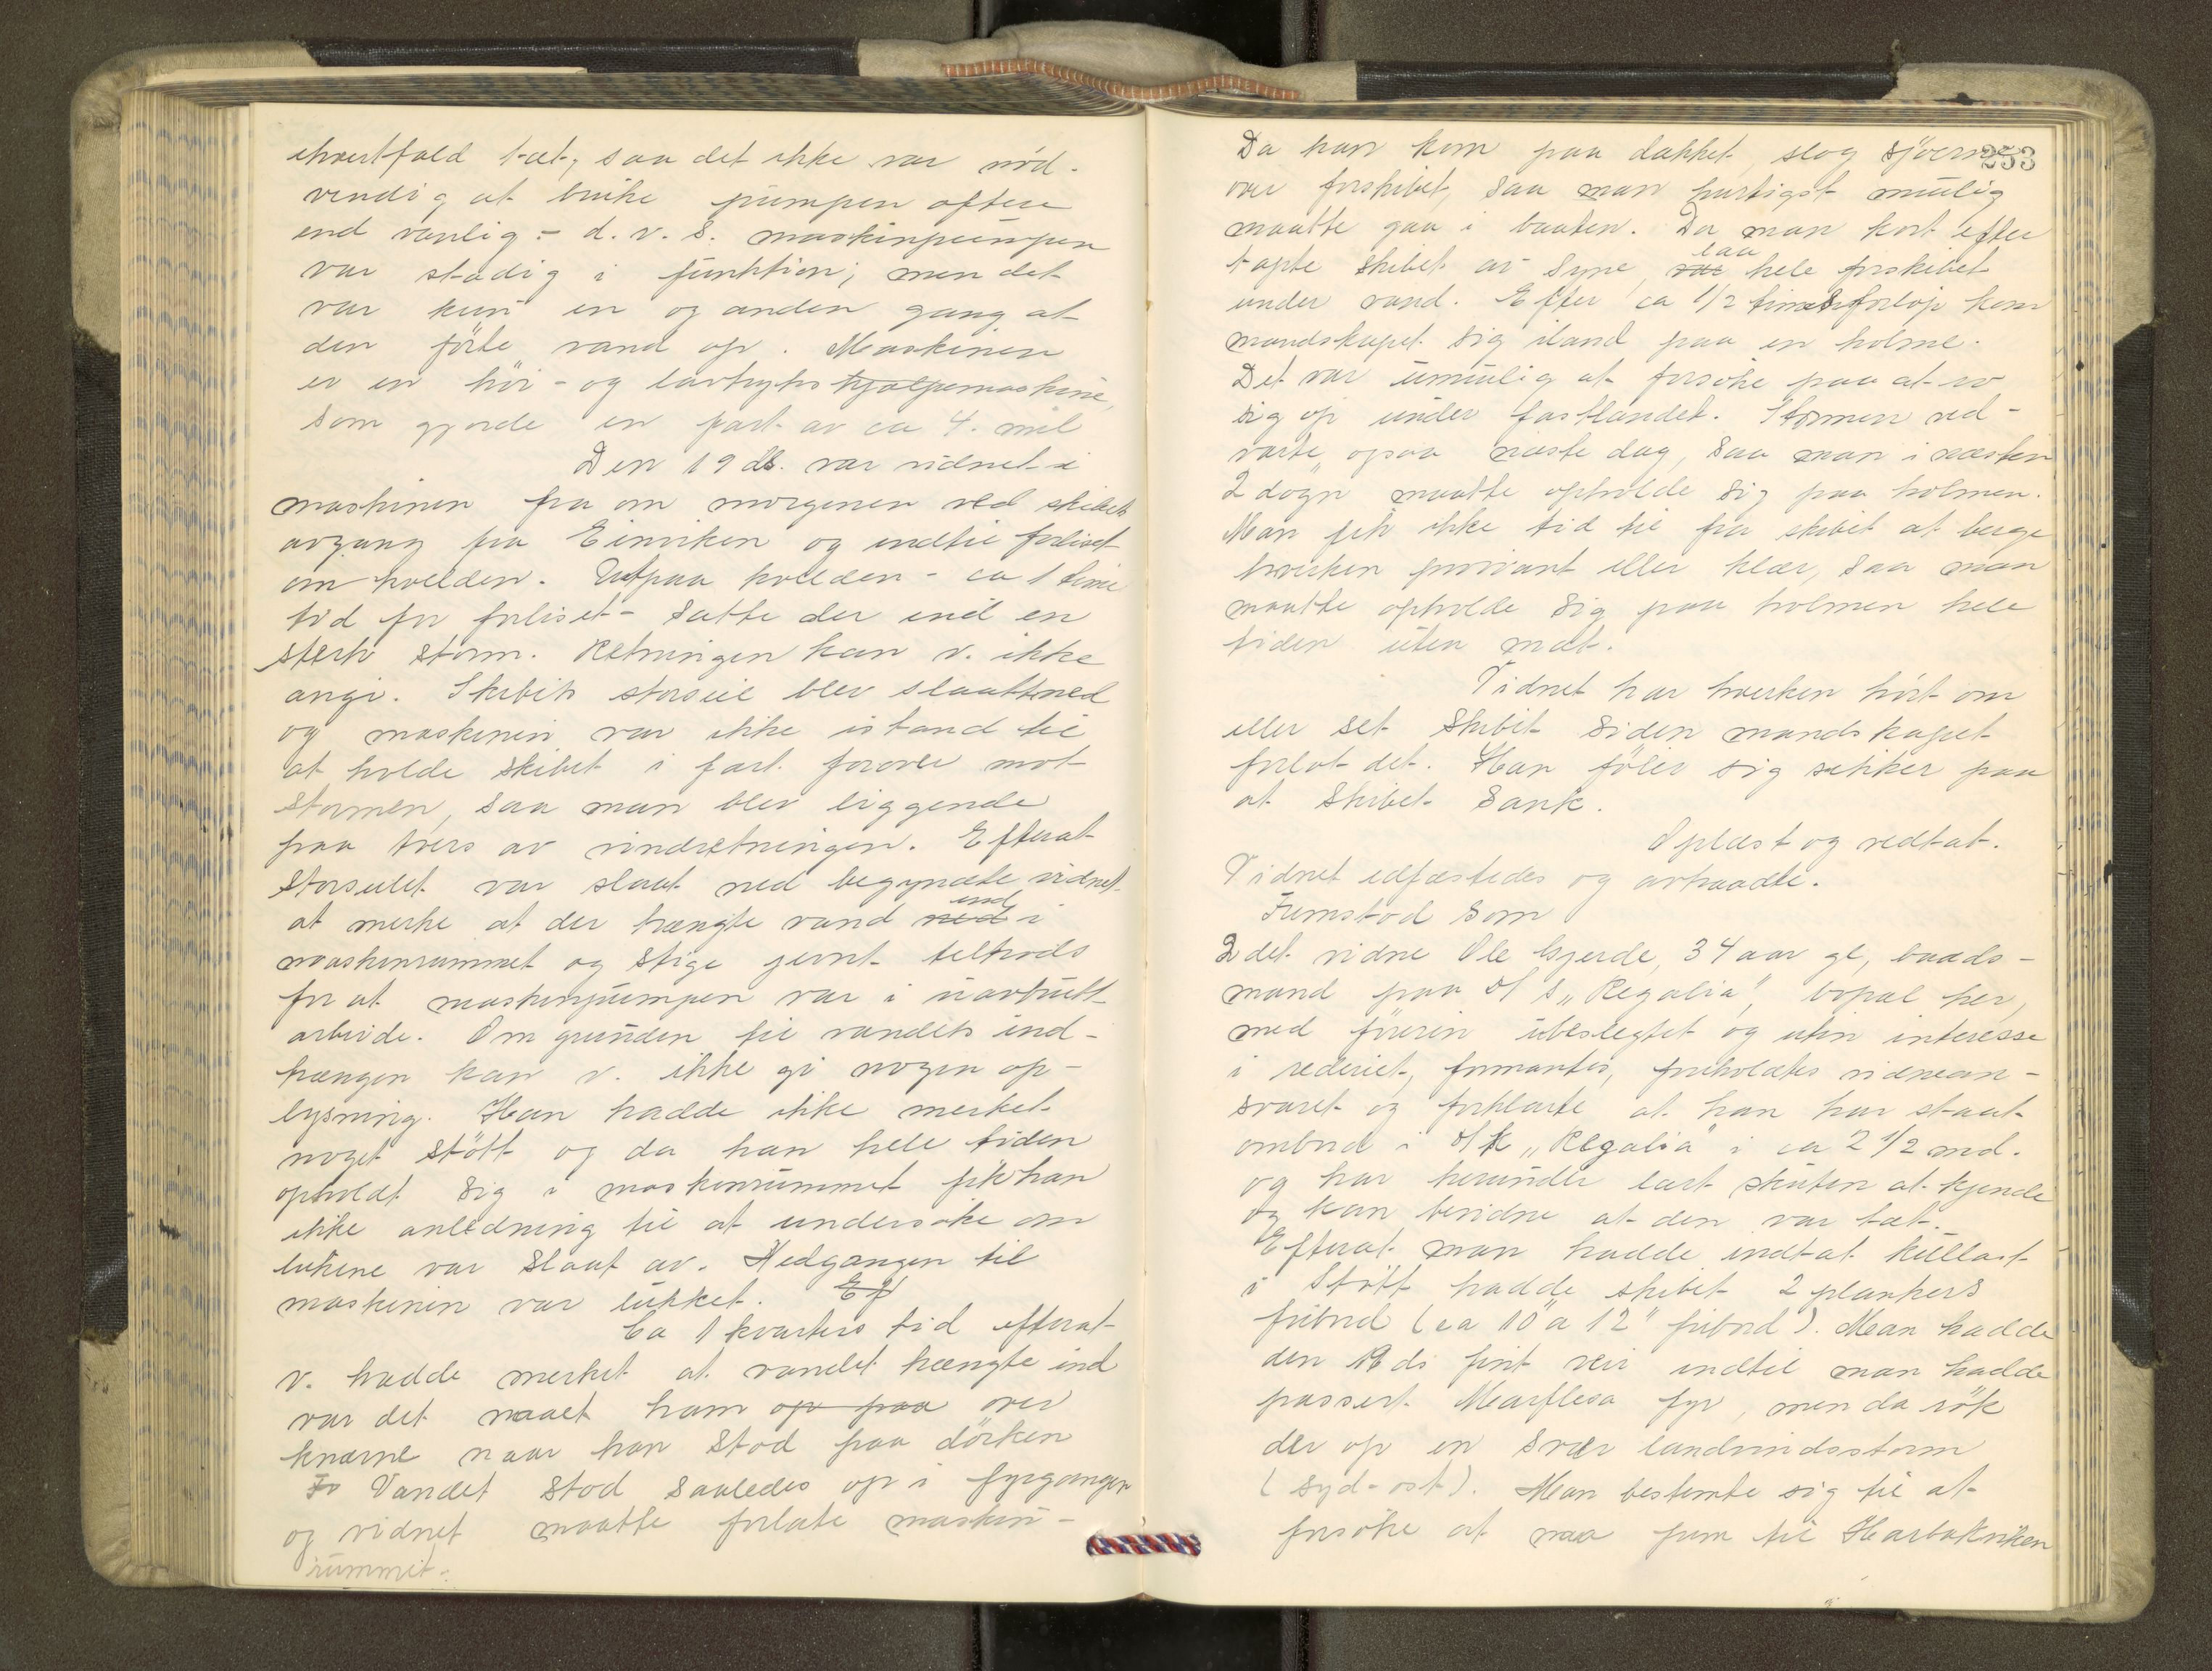 ihvertfald tæt, saa det ikke var nød-
vendig at bruke pumpen oftere
end vanlig - d.v.s. maskinpumpen
var stadig i funktion; men det
var kun en og anden gang at
den førte vand op. Maskinen
er en høi- og lavtryks hjælpemaskine,
som gjorde en fart av ca 4. mil
Den 19 ds. var vidnet i
maskinen fra om morgenen ved skibets
avgang fra Einviken og indtil forliset
om kvelden. Utpaa kvelden - ca 1 times
tid før forliset - satte der ind en
sterk storm. Retningen kan v. ikke
angi. Skibets storseil blev slaatt ned
og maskinen var ikke istand til
at holde skibet i fart forover mot
stormen, saa man blev liggende
paa tvers av vindretningen. Efterat
storseilet var slaat ned begyndte vidnet
at merke at der trængte vand ned ind i
maskinrummet og stige jevnt tiltrods
for at maskinpumpen var i uavbrutt
arbeide. Om grunden til vandets ind-
trængen kan v. ikke gi nogen op-
lysning. Han hadde ikke merket
noget støtt og da han hele tiden
opholdt sig i maskinrummet fik han
ikke anledning til at undersøke om
lukene var slaat av. Nedgangen til
maskinen var lukket. Ef
Ca 1 kvarters tid efterat
v. hadde merket at vandet trængte ind
var det naaet ham op paa over
knærne naar han stod paa dørken
Fo Vandet stod saaledes op i fyrgangen
og vidnet maatte forlate maskin-
rummet.
253
Da han kom paa dækket, slog sjøerne
over forskibet, saa man hurtigst mulig
maatte gaa i baaten. Da man kort efter
tapte skibet av syne, var laa hele forskibet
under vand. Efter ca 1/2 times forløp kom
mandskapet sig iland paa en holme.
Det var umulig at forsøke paa at ro
sig op under fastlandet. Stormen ved-
varte ogsaa næste dag, saa man i næsten
2 døgn maatte opholde sig paa holmen.
Man fik ikke tid til fra skibet at berge
hverken proviant eller klær, saa man
maatte opholde sig paa holmen hele
tiden uten mat.
Vidnet har hverken hørt om
eller set skibet siden mandskapet
forlot det. Han føler sig sikker paa
at skibet sank.
Oplæst og vedtat.
Vidnet edfæstedes og avtraadte.
Fremstod som
2det vidne Ole Gjerde, 34 aar gl, baads-
mand paa d/s „Regalia", bopæl her,
med føreren ubeslegtet og uten interesse
i rederiet, formantes, foreholdtes vidnean-
svaret og forklarte at han har staat
ombord i d/k „Regalia" i ca 2 1/2 md.
og har herunder lært skuten at kjende
og kan bevidne at den var tæt.
Efterat man hadde indtat kullast
i Støtt hadde skibet 2 plankers
fribord (ca 10" a 12" fribord). Man hadde
den 19 ds fint veir indtil man hadde
passert Mearflesa fyr, men da røk
der op en svær landvindsstorm
(syd-ost). Man bestemte sig til at
forsøke at naa frem til Harbakviken